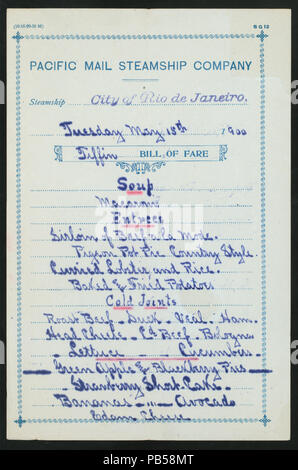 (10-15-99-20 M)
S G 12
PACIFIC MAIL STEAMSHIP COMPANY
Steamship City of Rio de Janeiro.
Tuesday May 15th 1900
Tiffin BILL OF FARE
Soup
Macaroni
Entrees
Sirloin of Beef a la Mode.
Pigeon Pot Pie Country Style.
Curried Lobster and Rice.
Baked & Fried Potatoes
Cold Joints
Roast Beef - Duck - Veal - Ham.
Head Cheese - Cd Beef. Bologna
Lettuce - - Cucumbers
Green Apple & Blueberry Pies
Strawberry Short Cake
Bananas - Avocado
Edam Cheese
alamy
Image ID: PB58MT
www.alamy.com